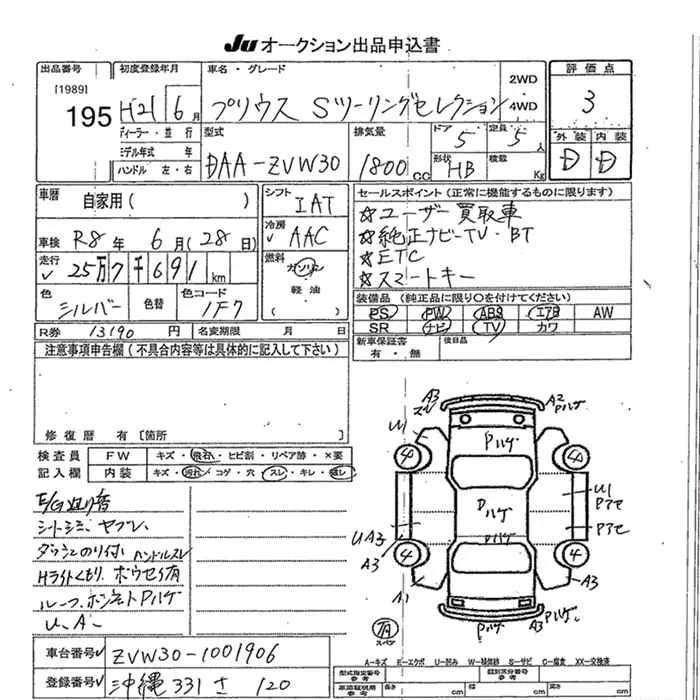 Ju オークション出品申込書
出品番号 初度登録年月 車名・グレード 2WD 評価点
[1989] 195 H21 6月 プリウス Sツーリングセレクション 4WD 3
ディーラー・並行 型式 排気量 ドア 5 定員 5人 外装 内装
モデル年式 年 DAA-ZVW30 1800cc 形状 HB 積載 Kg D D
ハンドル 左・右
車暦 自家用( ) シフト IAT セールスポイント(正常に機能するものに限ります)
☆ユーザー買取車
車検 R8年6月(28日) 冷房 AAC ☆純正ナビ-TV・BT
走行 25万7千691km 燃料 ガソリン ☆ETC
軽油 ☆スマートキー
( )
色 シルバー 色替 色コード 1F7 装備品(純正品に限り○を付けてください)
PS PW ABS エアB AW
R券 13190円 名変期限 月 日 SR ナビ TV カワ
注意事項申告欄(不具合内容等は具体的に記入して下さい) 新車保証書 後日品
有・無
修復暦 有[箇所 ]
検査員 FW キズ・飛石・ヒビ割・リペア跡・×要
記入欄 内装 キズ・汚れ・コゲ・穴・スレ・キレ
A3 A2 Pハゲ
U1 Pハゲ
4 4
Pハゲ U1
UA3
A3
4 4
A1 A3
Pハゲ A3 Pハゲ
スペア
シートシミ、ヤブレ
ハンドルスレ
Hライトくもり
U、A
A-キズ E-エクボ U-凹み W-補修跡 S-サビ C-腐食 XX-交換済
車台番号 ZVW30-1001906 型式指定番号 参考 類別区分番号 参考
登録番号 沖縄 331 さ 120 長さ cm cm cm